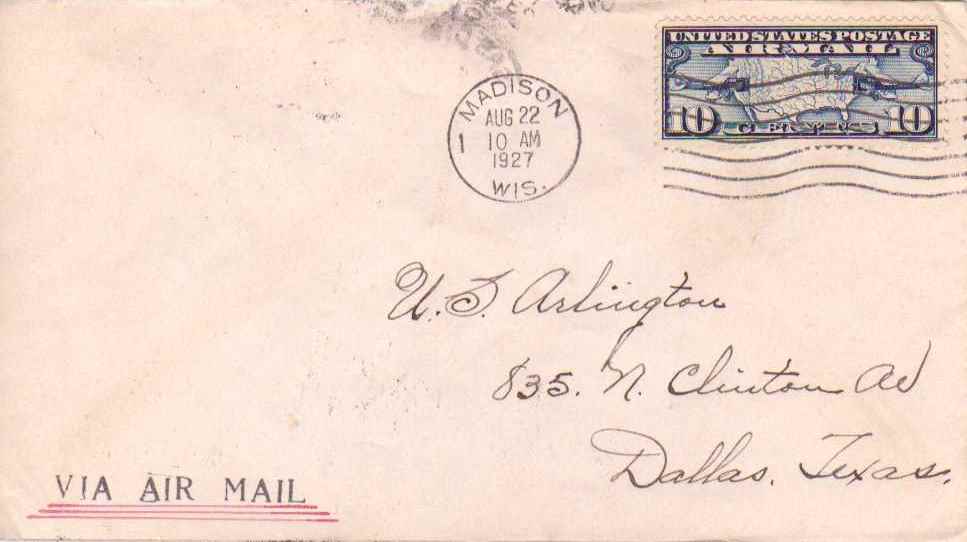 UNITED STATES POSTAGE
AIR MAIL
10 CENTS 10
MADISON
AUG 22
1 10 AM
1927
WIS.
U.S. Arlington
835. N. Clinton Av
Dallas, Texas.
VIA AIR MAIL